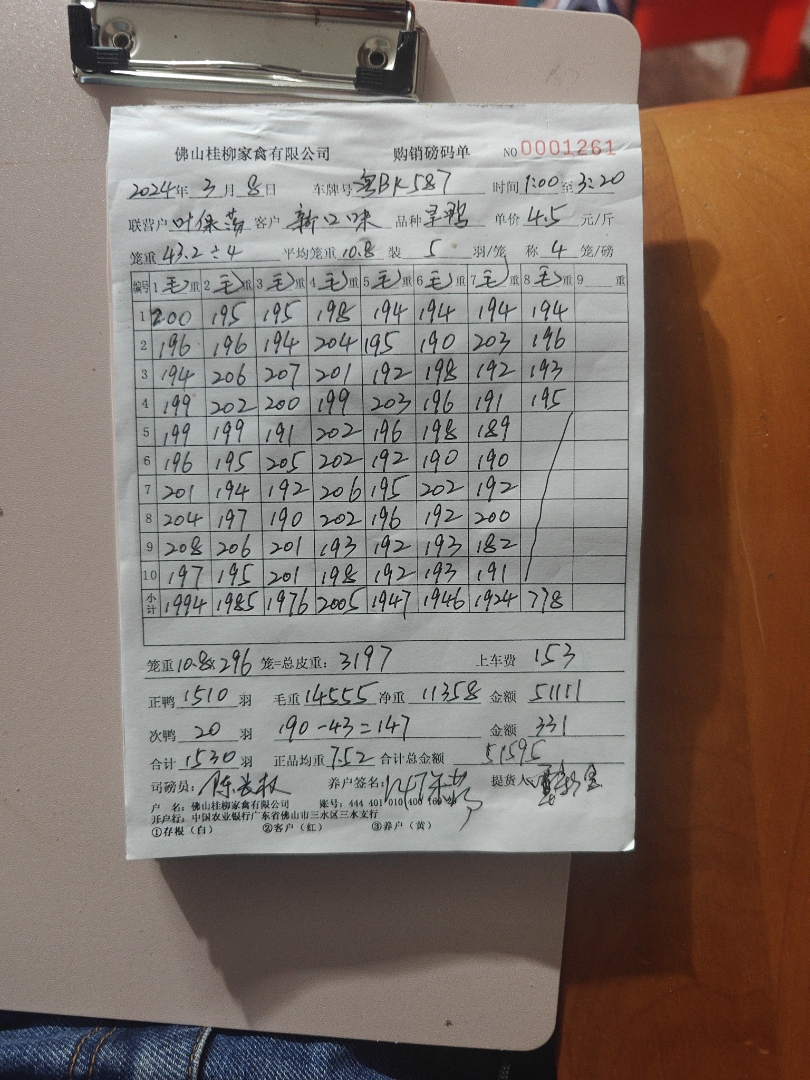 佛山桂柳家禽有限公司 购销磅码单 NO 0001261
2024年 3月 8日 车牌号 粤BK587 时间 1:00 至 3:20
联营户 叶保 客户 新口味 品种 鸭 单价 4.5 元/斤
笼重 43.2÷4 平均笼重 10.8 装 5 羽/笼 称 4 笼/磅
编号 1 毛重 2 毛重 3 毛重 4 毛重 5 毛重 6 毛重 7 毛重 8 毛重 9 重
1 200 195 195 198 194 194 194 194
2 196 196 194 204 195 190 203 196
3 194 206 207 201 192 198 192 193
4 199 202 200 199 203 196 191 195
5 199 199 191 202 196 198 189
6 196 195 205 202 192 190 190
7 201 194 192 206 195 202 192
8 204 197 190 202 196 192 200
9 208 206 201 193 192 193 182
10 197 195 201 198 192 193 191
小计 1994 1985 1976 2005 1947 1946 1924 778
笼重 10.8×296 笼=总皮重: 3197 上车费 153
正鸭 1510 羽 毛重 14555 净重 11358 金额 51111
次鸭 20 羽 190-43=147 金额 331
合计 1530 羽 正品均重 7.52 合计总金额 51595
司磅员: 陈 权 养户签名: 提货人:
户 名: 佛山桂柳家禽有限公司 账号: 444 401 010 400
开户行: 中国农业银行广东省佛山市三水区三水支行
①存根(白) ②客户(红) ③养户(黄)